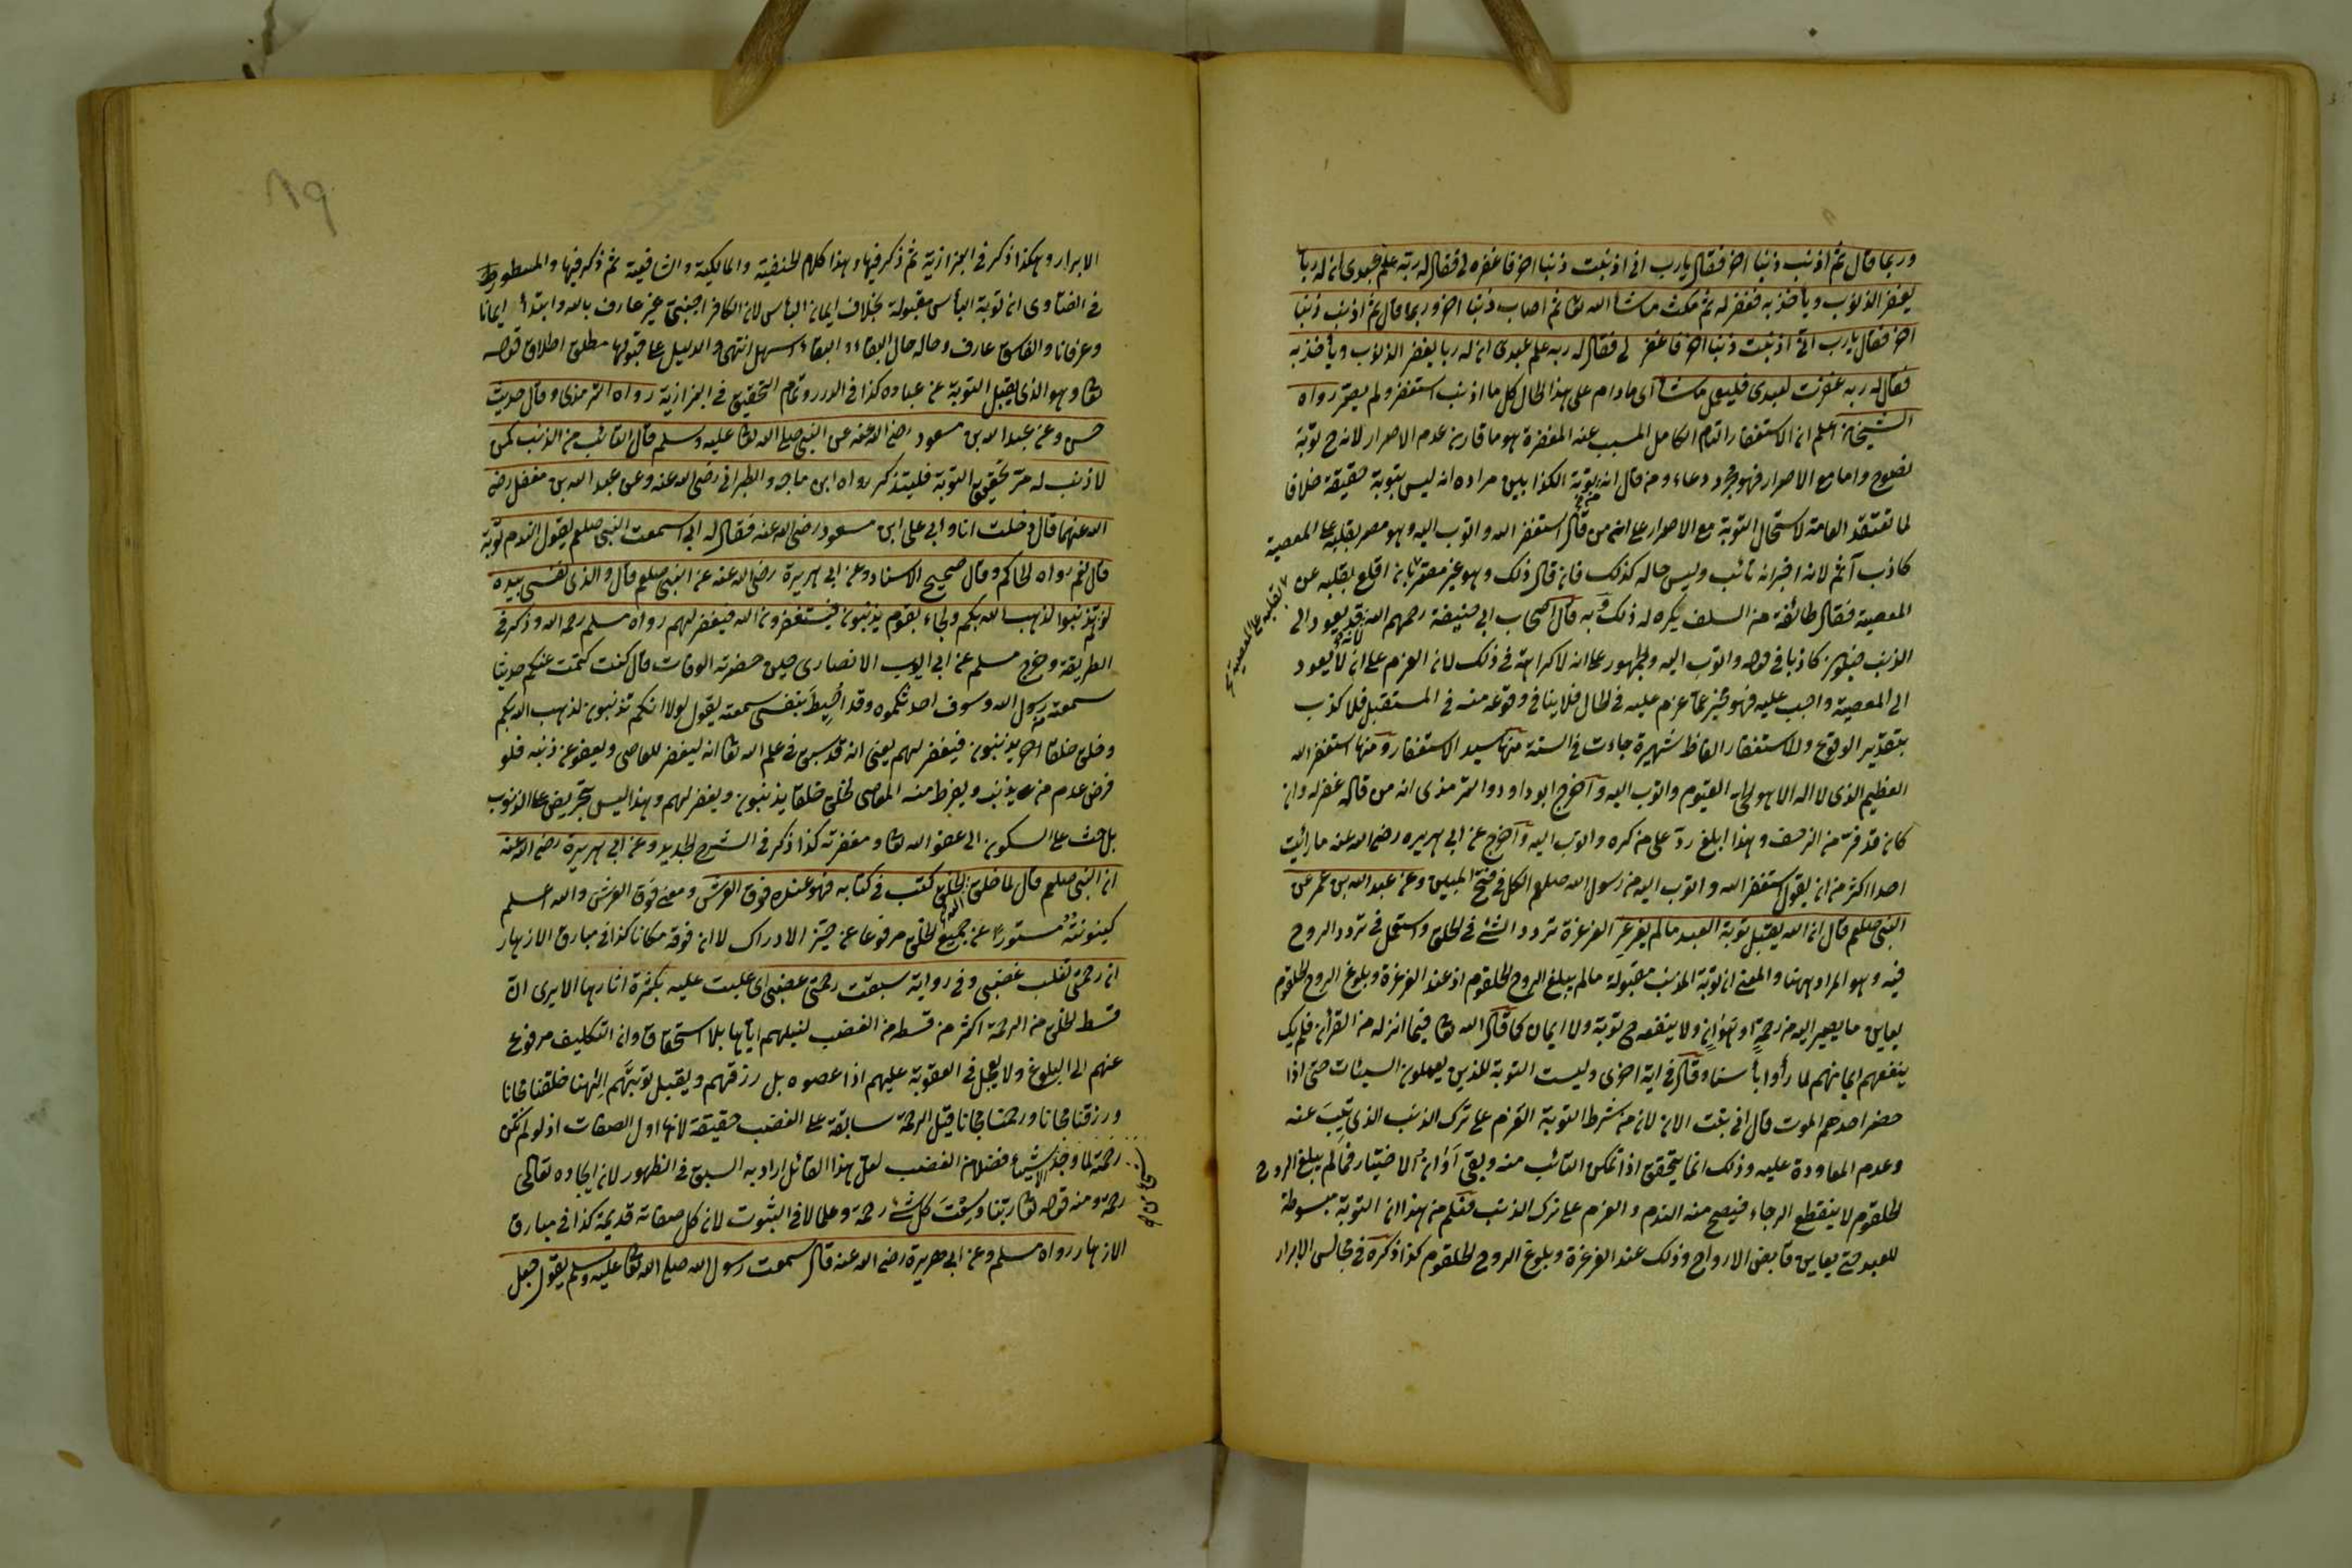 وربما قال ثم اذنب ذنبا اخر فقال يارب انى اذنبت ذنبا اخر فاغفره لى فقال له ربه علم عبدى ان له ربا
يغفر الذنوب ويأخذ به فغفر له ثم مكث ماشأ الله تعا ثم اصاب ذنبا اخر وربما قال ثم اذنب ذنبا
اخر فقال يارب انى اذنبت ذنبا اخر فاغفر لى فقال له ربه علم عبدى ان له ربا يغفر الذنوب ويأخذ به
فقال له ربه غفرت لعبدى فليعمل ماشأ اى مادام على هذا الحال كل ما اذنب استغفر ولم يصر رواه
الشيخان اعلم ان الاستغفار التام الكامل المسبب عنه المغفرة هو ما قارن عدم الاصرار لانه ح توبة
نصوح واما مع الاصرار فهو مجرد دعاء ومن قال انه توبة الكذابين مراده انه ليس بتوبة حقيقة خلافا
لما تعتقد العامة لاستحال التوبة مع الاصرار على ان من قال استغفر الله واتوب اليه وهو مصر بقلبه عل المعصية
كاذب آثم لانه اخبر انه تائب وليس حاله كذلك فان قال ذلك وهو غير مصر بان اقلع بقلبه عن
المعصية فقال طائفة من السلف يكره له ذلك وبه قال اصحاب ابى حنيفة رحمهم الله لانه قد يعود الى
الذنب فيكون كاذبا فى قوله واتوب اليه والجمهور عل انه لا كراهة فى ذلك لان العزم على ان لا يعود
الى المعصية واجب عليه فهو مخبر عما عزم عليه فى الحال فلا ينافى وقوعه منه فى المستقبل فلا كذب
بتقدير الوقوع وللاستغفار الفاظ شهيرة جاءت فى السنة منها سيد الاستغفار ومنها استغفر الله
العظيم الذى لا اله الا هو الحى القيوم واتوب اليه واخرج ابو داود والترمذى ان من قاله غفر له وان
كان قد فر من الزحف وهذا ابلغ رد على من كره واتوب اليه واخرج عن ابى هريره رضى الله عنه ما رأيت
احدا اكثر من ان يقول استغفر الله واتوب اليه من رسول الله صلعم الكل فى فتح المبين وعن عبد الله بن عمر عن
النبى صلعم قال ان الله يقبل توبة العبد مالم يغرغر الغرغرة تردد الشئ فى الحلق واستعمل فى تردد الروح
فيه وهو المراد ههنا والمعنى ان توبة المذنب مقبولة مالم يبلغ الروح الحلقوم اذ عند الغرغرة وبلوغ الروح الحلقوم
يعاين ما يصير اليه من رحمة او هوان ولا ينفعه ح توبة ولا ايمان كما قال الله تعا فيما انزله من القرأن فلم يك
ينفعهم ايمانهم لما رأوا بأسنا وقال فى اية اخرى وليست التوبة للذين يعملون السيئات حتى اذا
حضر احدهم الموت قال انى تبت الان لان من شرط التوبة العزم على ترك الذنب الذى يتيب عنه
وعدم المعاودة عليه وذلك انما يتحقق اذا تمكن التائب منه وبقى اوان الاختيار فمالم يبلغ الروح
الحلقوم لا ينقطع الرجاء فيصح منه الندم والعزم على ترك الذنب فعلم من هذا ان التوبة مبسوطة
للعبد حتى يعاين قابض الارواح وذلك عند الغرغرة وبلوغ الروح الحلقوم كذا ذكره فى مجالس الابرار
١٩
الابرار وهكذا ذكر فى البزازية ثم ذكر فيها وهذا كلام الحنفية والمالكية والشافعية ثم ذكر فيها والمسطور
فى الفتاوى ان توبة اليأس مقبولة بخلاف ايمان اليأس لان الكافر اجنبى غير عارف بالله وابتدأ ايمانا
وعرفانا والفاسق عارف وحاله حال البقاء والبقاء اسهل انتهى والدليل عل قبولها مطلق اطلاق قوله
تعا وهو الذى يقبل التوبة عن عباده كذا فى الدرر وتمام التحقيق فى البزازية رواه الترمذى وقال حديث
حسن وعن عبد الله بن مسعود رضى الله عنه عن النبى صلى الله تعا عليه وسلم قال التائب من الذنب كمن
لا ذنب له مر تحقيق التوبة فليتذكر رواه ابن ماجه والطبرانى رضى الله عنه وعن عبد الله بن مغفل رضى
الله عنهما قال دخلت انا وابى على ابن مسعود رضى الله عنه فقال له ابى اسمعت النبى صلعم يقول الندم توبة
قال نعم رواه الحاكم وقال صحيح الاسناد وعن ابى هريرة رضى الله عنه عن النبى صلعم قال والذى نفسى بيده
لو لم تذنبوا لذهب الله بكم ولجاء بقوم يذنبون فيستغفرون الله فيغفر لهم رواه مسلم رحمه الله وذكر فى
الطريقة وخرج مسلم عن ابى ايوب الانصارى حين حضرته الوفات قال كنت كتمت عنكم حديثا
سمعته من رسول الله وسوف احدثكموه وقد احيط بنفسى سمعته يقول لولا انكم تذنبون لذهب الله بكم
وخلق خلقا اخر يذنبون فيغفر لهم يعنى انه قد سبق فى علم الله تعا انه ليغفر للعاصى ويعفو عن ذنبه فلو
فرض عدم من يذنب ويفرط منه المعاصى لخلق خلقا يذنبون ويغفر لهم وهذا ليس تحريض عل الذنوب
بل حث عل السكون الى عفو الله تعا ومغفرته كذا ذكر فى الشرح الجديد وعن ابى هريرة رضى الله عنه
ان النبى صلعم قال لما خلق الله الخلق كتب فى كتابه فهو عنده فوق العرش ومعنى فوق العرش والله اعلم
كينونته مستورا عن جميع الخلق مرفوعا عن حيز الادراك لا ان فوقه مكانا كذا فى مبارق الازهار
ان رحمتى تغلب غضبى وفى رواية سبقت رحمتى غضبى اى غلبت عليه بكثرة اثارها الا يرى ان
قسط الخلق من الرحمة اكثر من قسطه من الغضب لنيلهم اياها بلا استحقاق وان التكليف مرفوع
عنهم الى البلوغ ولا يعجل فى العقوبة عليهم اذا عصوه بل رزقهم ويقبل توبتهم الهنا خلقنا مجانا
ورزقنا مجانا ورحمنا مجانا قيل الرحمة سابقة على الغضب حقيقة لانها اول الصفات اذ لو لم تكن
رحمة لما وجد الاشياء فضلا من الغضب لعل هذا القائل اراد به السبق فى الظهور لان ايجاده تعالى
رحمة ومنه قوله تعا ربنا وسعت كل شئ رحمة وعلما لا فى الثبوت لان كل صفاته قديمة كذا فى مبارق
الازهار رواه مسلم وعن ابى هريرة رضى الله عنه قال سمعت رسول الله صلى الله تعا عليه وسلم يقول جعل